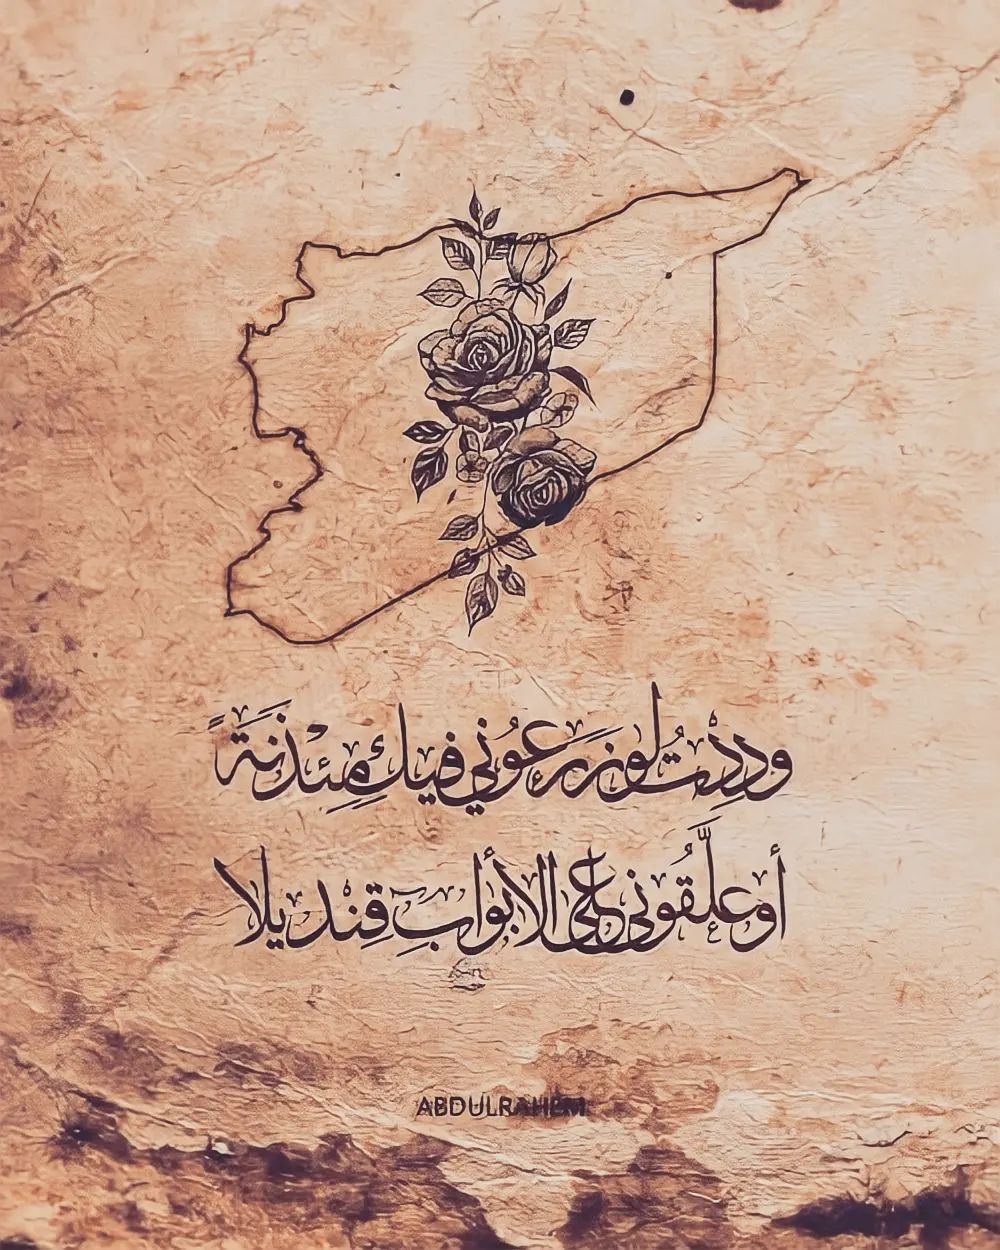 وددتُ لو زرَعُوني فيكِ مِئذنَةً
أو علَّقُوني على الأبوابَ قِنديلا
ABDULRAHEM